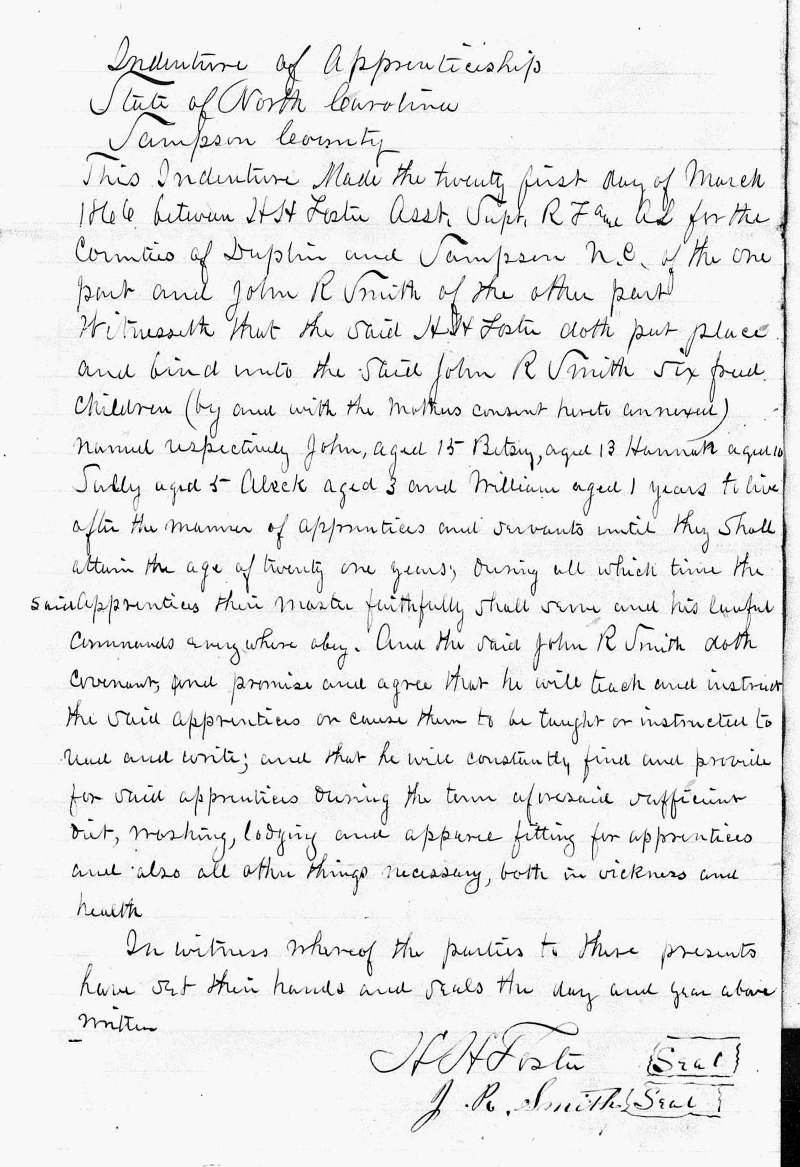 Indenture of Apprenticiship
State of North Carolina
Sampson County
This Indenture Made the twenty first day of March
1866 between H H Foster Asst. Supt. R F and A L for the
Counties of Duplin and Sampson N.C. of the one
part and John R Smith of the other part
Witnesseth that the said H H Foster doth put place
and bind unto the said John R Smith six freed
children (by and with the Mothers consent hereto annexed)
named respectively John, aged 15 Betsey, aged 13 Hannah aged 10
Sally aged 5 Aleck aged 3 and William aged 1 years to live
after the manner of apprentices and servants until they shall
attain the age of twenty one years; during all which time the
said apprentices their master faithfully shall serve and his lawful
commands everywhere obey. And the said John R Smith doth
covenant, and promise and agree that he will teach and instruct
the said apprentices or cause them to be taught or instructed to
read and write; and that he will constantly find and provide
for said apprentices during the term aforesaid sufficient
diet, washing, lodging and apparel fitting for apprentices
and also all other things necessary, both in sickness and
health
In witness whereof the parties to these presents
have set their hands and seals the day and year above
written
H H Foster {Seal}
J. R. Smith {Seal}